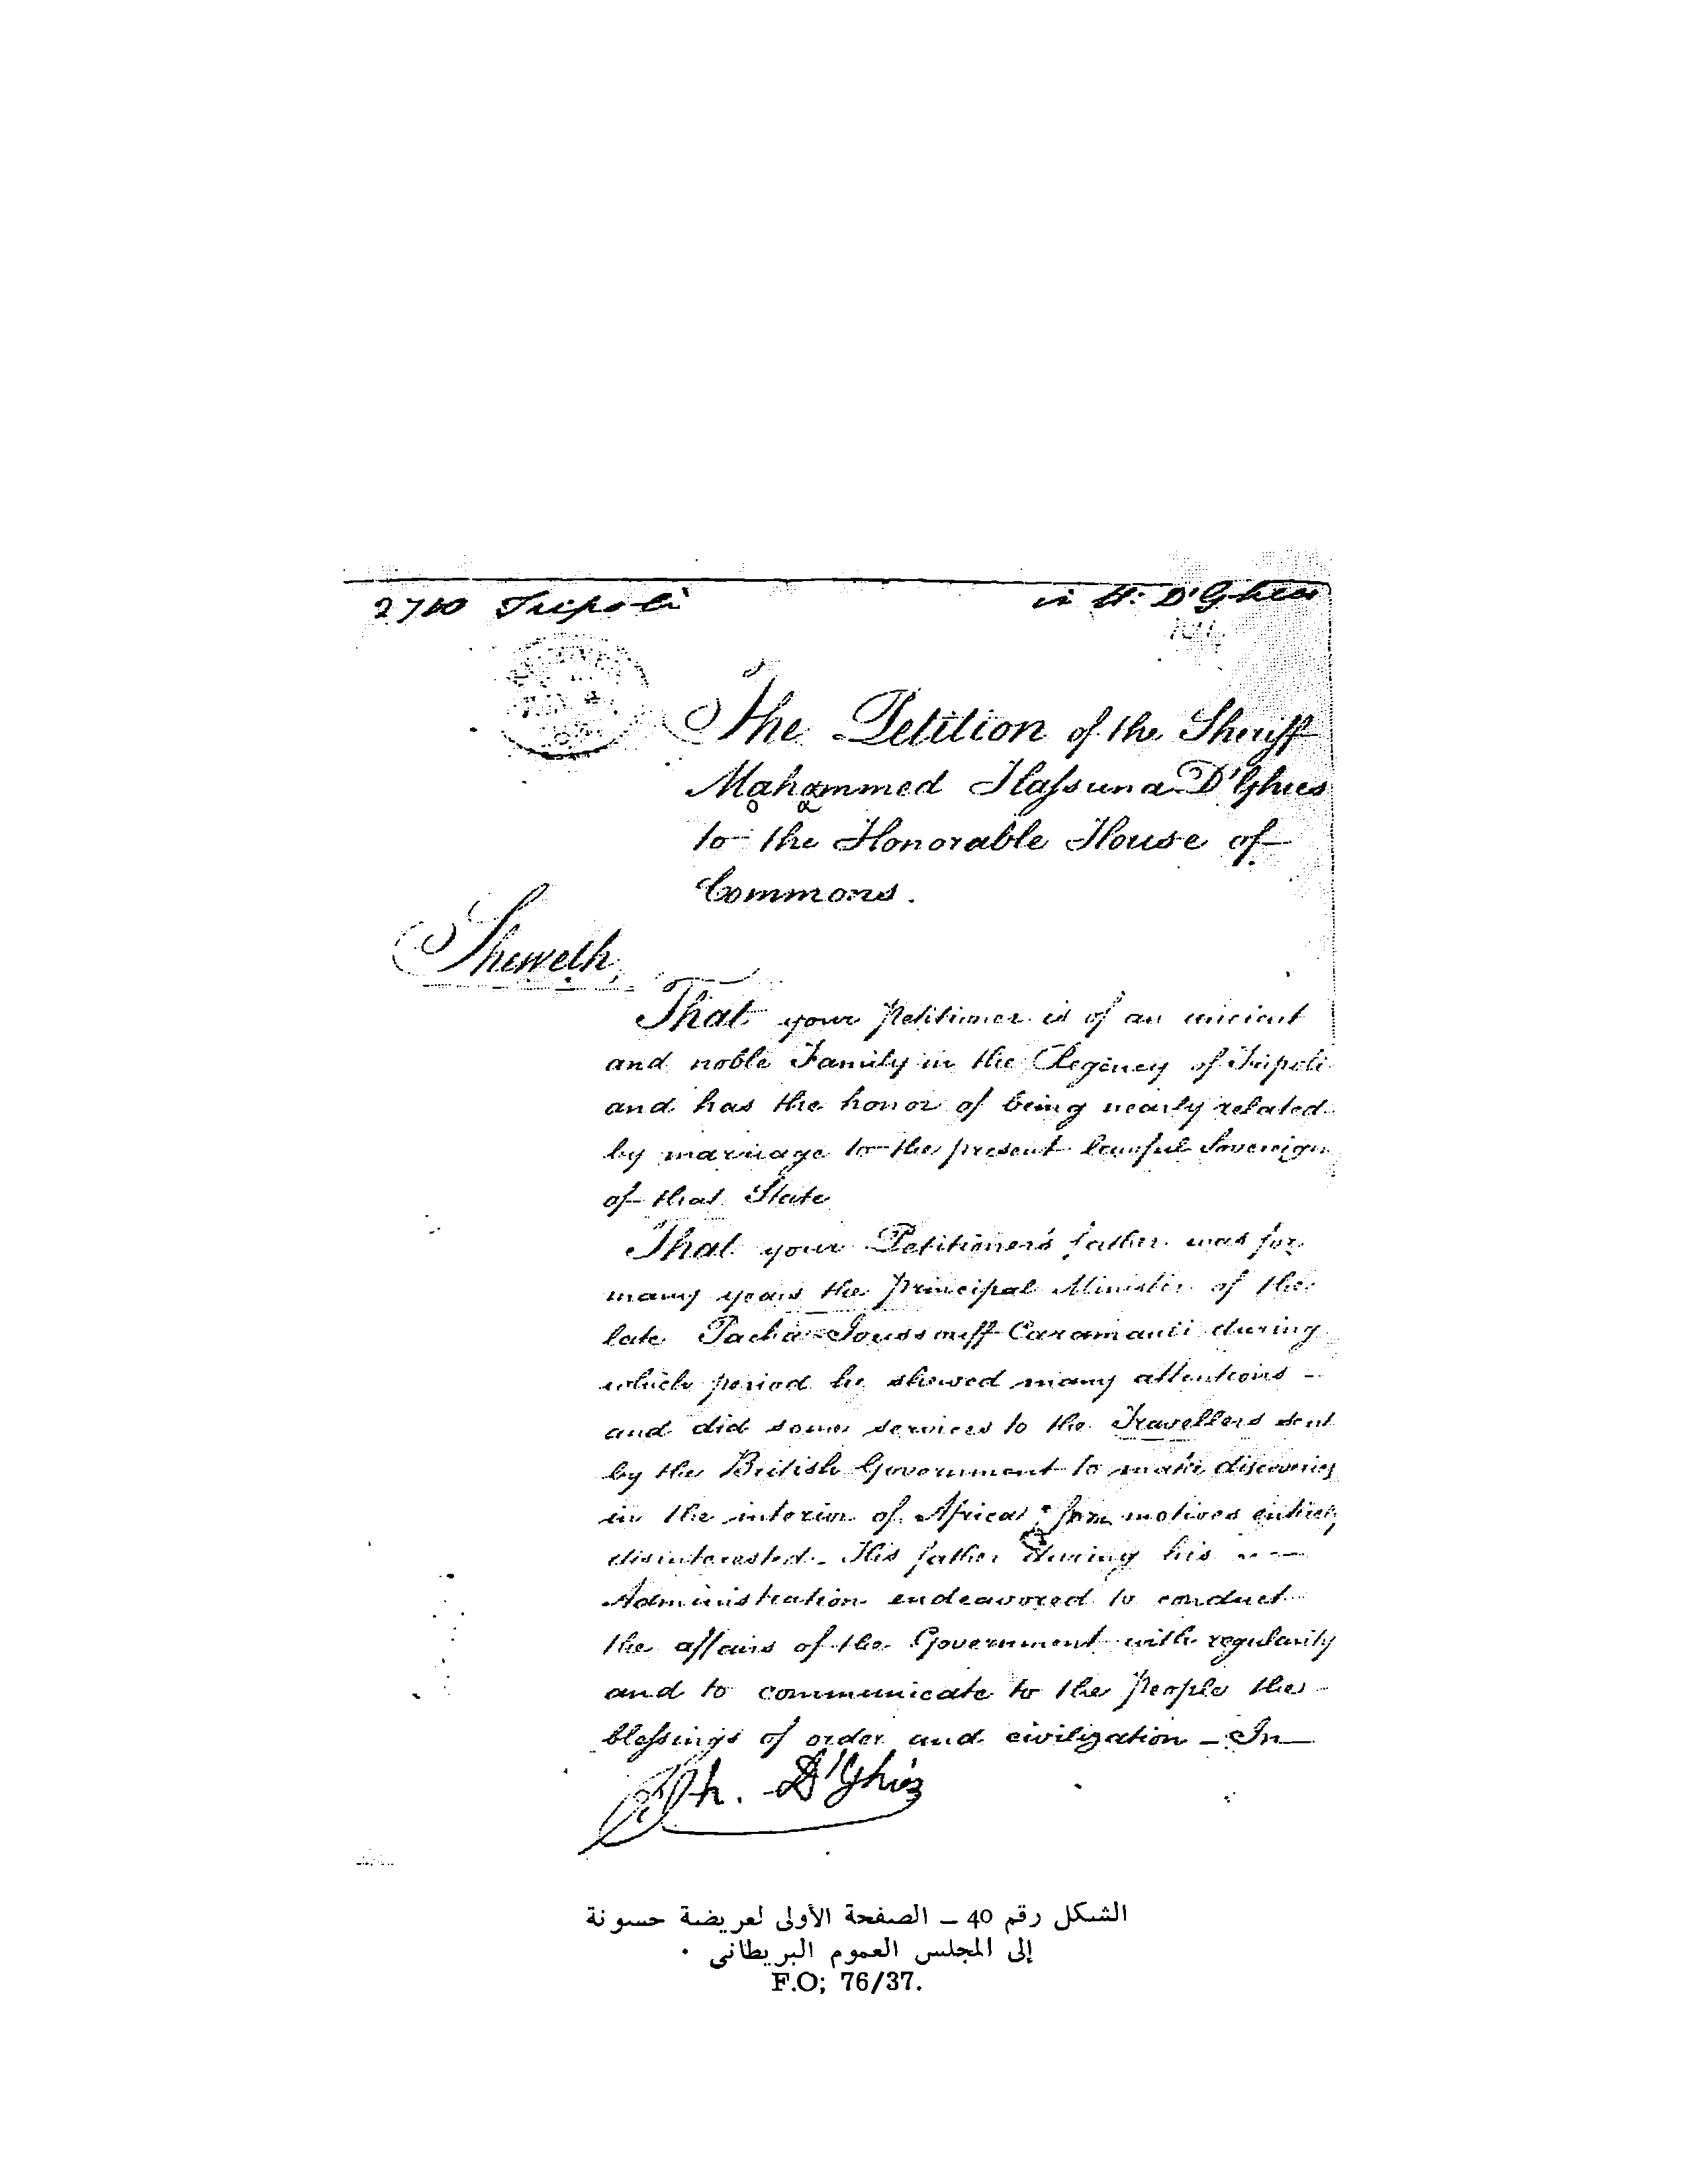 2710 Tripoli
in H. D'Ghies
The Petition of the Sheriff
Mahammed Hassuna D'Ghies
to the Honorable House of
Commons.
Sheweth,
That your Petitioner is of an ancient
and noble Family in the Regency of Tripoli
and has the honor of being nearly related
by marriage to the present lawful Sovereign
of that State
That your Petitioner's father was for
many years the principal Minister of the
late Pacha Joussouff Caramanli during
which period he shewed many attentions –
and did some services to the Travellers sent
by the British Government to make discoveries
in the interior of Africa from motives entirely
disinterested. His father during his –
Administration endeavored to conduct
the affairs of the Government with regularity
and to communicate to the People the –
blessings of order and civilization – In
D'Ghies
الشكل رقم 40 – الصفحة الأولى لعريضة حسونة
إلى المجلس العموم البريطانى .
F.O; 76/37.